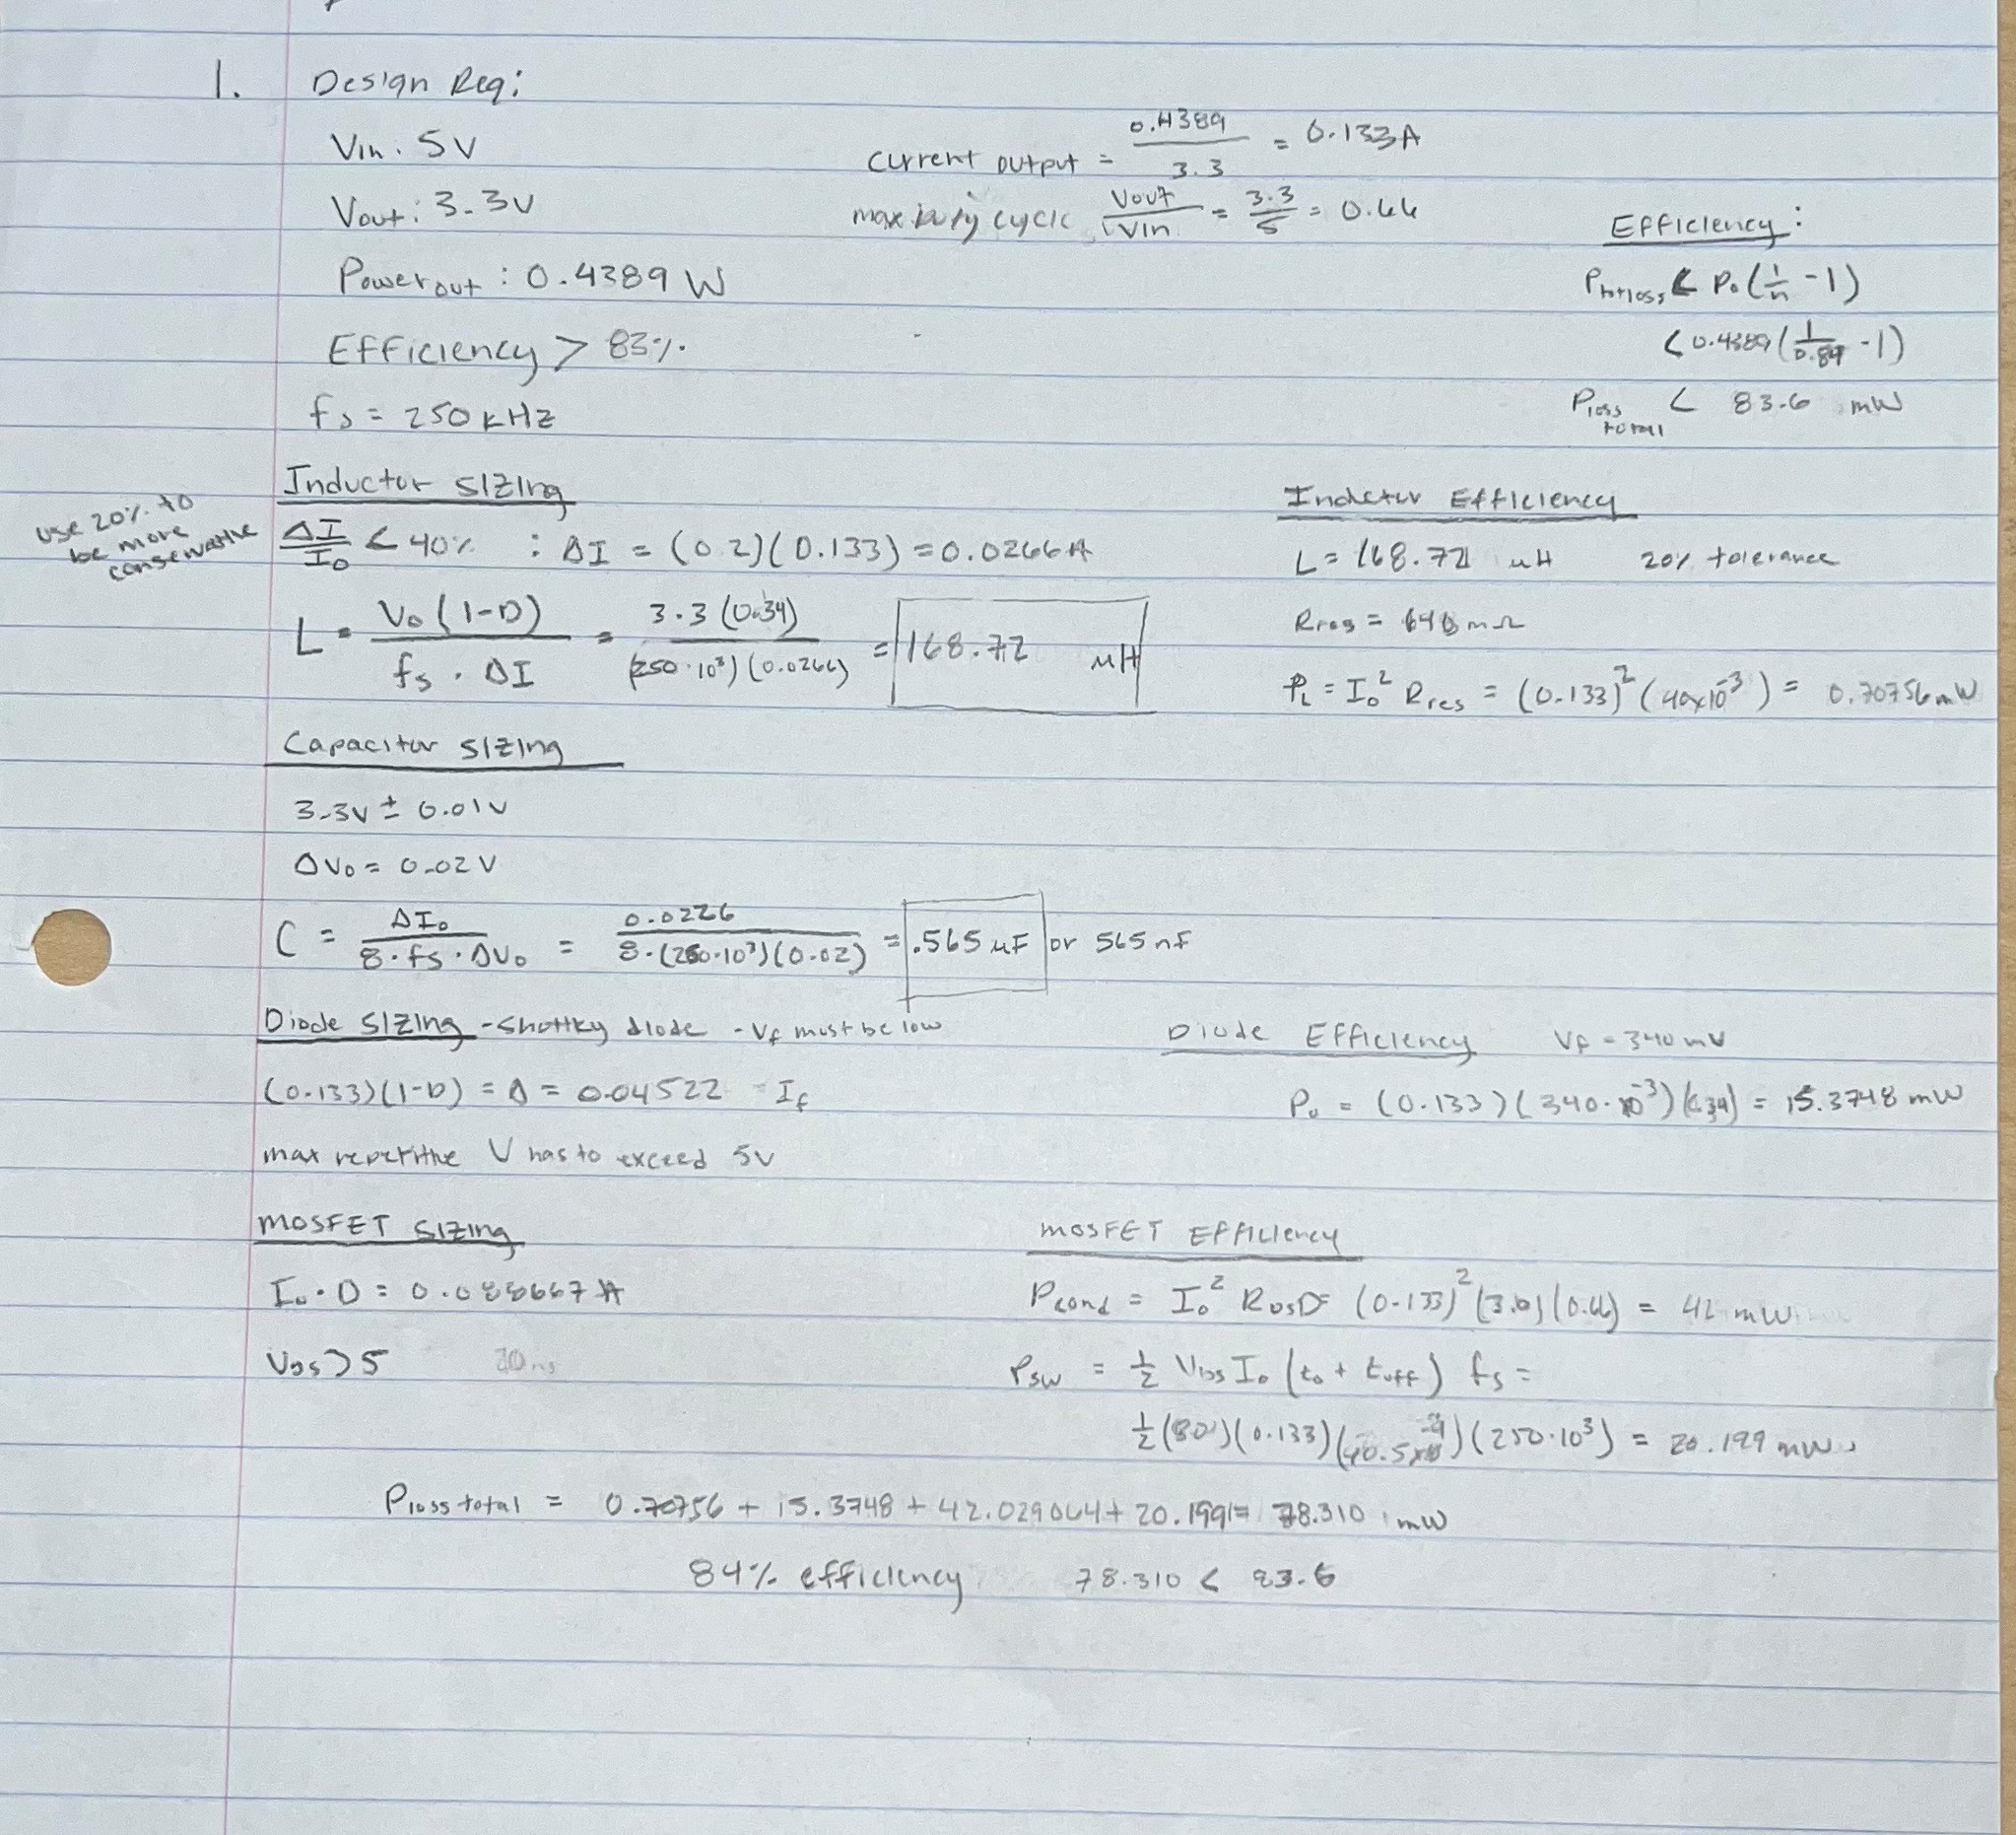 1. Design Req:
Vin: 5V
Vout: 3.3V
Power out: 0.4389 W
Efficiency > 83%.
fs = 250 kHz
current output = 0.4389 / 3.3 = 0.133A
max duty cycle Vout / Vin = 3.3 / 5 = 0.66
Efficiency:
Ptotloss < Po (1/n - 1)
< 0.4389 (1/0.84 - 1)
Ploss total < 83.6 mW
Inductor sizing
use 20% to be more conservative
ΔI / Io < 40% : ΔI = (0.2)(0.133) = 0.0266A
L = Vo (1-D) / fs · ΔI = 3.3 (0.34) / (250·10³)(0.0266) = 168.72 uH
Inductor Efficiency
L = 168.72 uH 20% tolerance
Rres = mΩ
PL = Io² Rres = (0.133)² (40x10⁻³) = 0.70756 mW
Capacitor sizing
3.3v ± 0.01v
ΔVo = 0.02V
C = ΔIo / 8·fs·ΔVo = 0.0226 / 8·(250·10³)(0.02) = .565 uF or 565 nF
Diode sizing - Shottky diode - Vf must be low
(0.133)(1-D) = Δ = 0.04522 = If
max repetitive V has to exceed 5V
Diode Efficiency Vf = 340 mV
PD = (0.133)(340·10⁻³)(.34) = 15.3748 mW
MOSFET sizing
Io·D = A
VDS > 5 20ns
MOSFET Efficiency
Pcond = Io² RDS D = (0.133)² (3.0)(0.66) = 42 mW
Psw = 1/2 VDS Io (to + toff) fs =
1/2 (30)(0.133)(40.5x10⁻⁹)(250·10³) = 20.199 mW
Ploss total = 0.70756 + 15.3748 + 42.029064 + 20.199 = 78.310 mW
84% efficiency 78.310 < 83.6